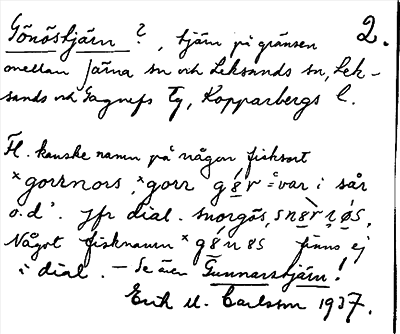 Gönöstjärn ?, tjärn på gränsen 2.
mellan Järna sn och Leksands sn, Lek-
sands och Gagnefs Tg, Kopparbergs l.
Fl. kanske namn på någon fisksort
*gorrnors, *gorr går 'var i sår
o.d'. Jfr dial. snorgös,
Något fisknamn finns ej
i dial. – Se även Gunnarstjärn!
Erik M. Carlsson 1937.